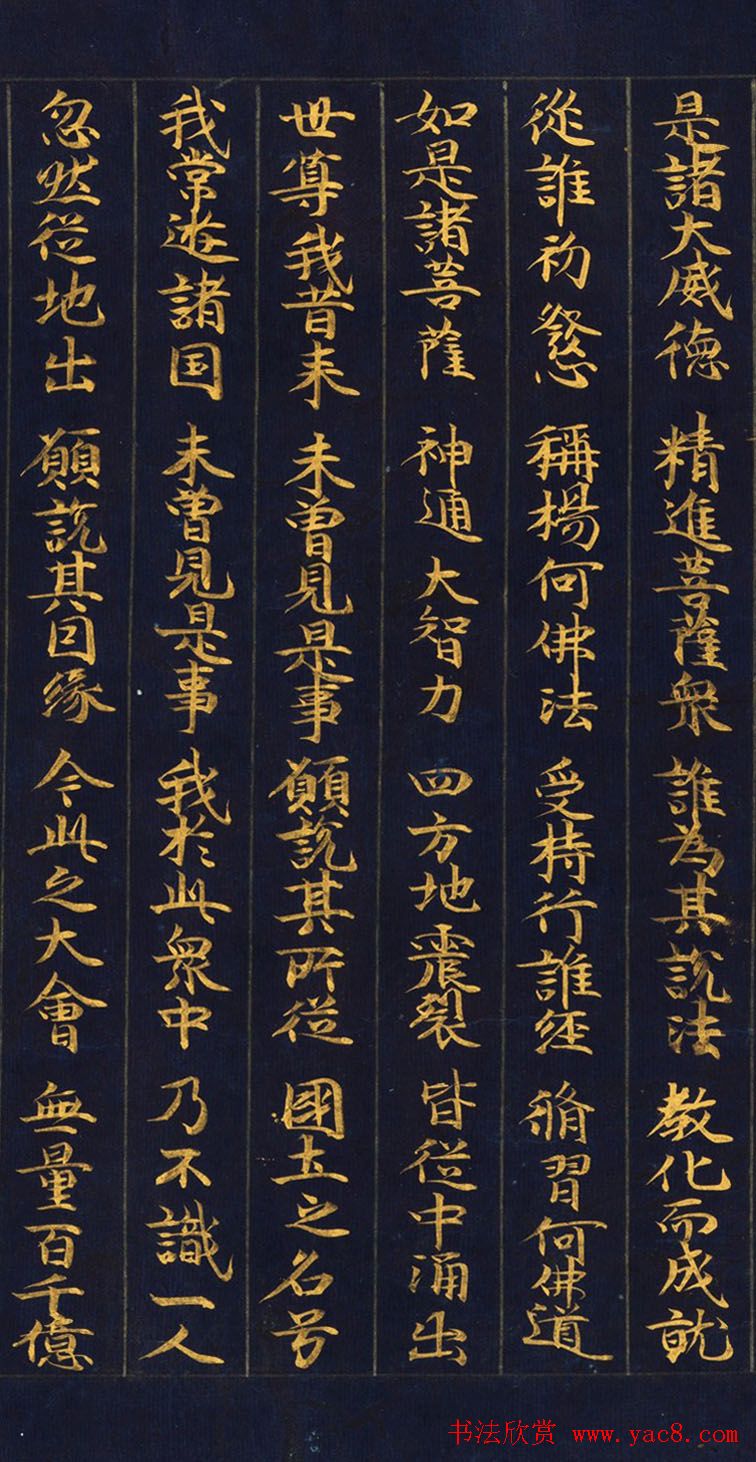 是諸大威德 精進菩薩衆 誰為其說法 教化而成就
從誰初發心 稱楊何佛法 受持行誰經 脩習何佛道
如是諸菩薩 神通大智力 四方地震裂 皆從中涌出
世尊我昔来 未曽見是事 願說其所從 國土之名号
我常遊諸国 未曽見是事 我於此衆中 乃不識一人
忽然從地出 願說其因緣 今此之大會 無量百千億
书法欣赏 www.yac8.com